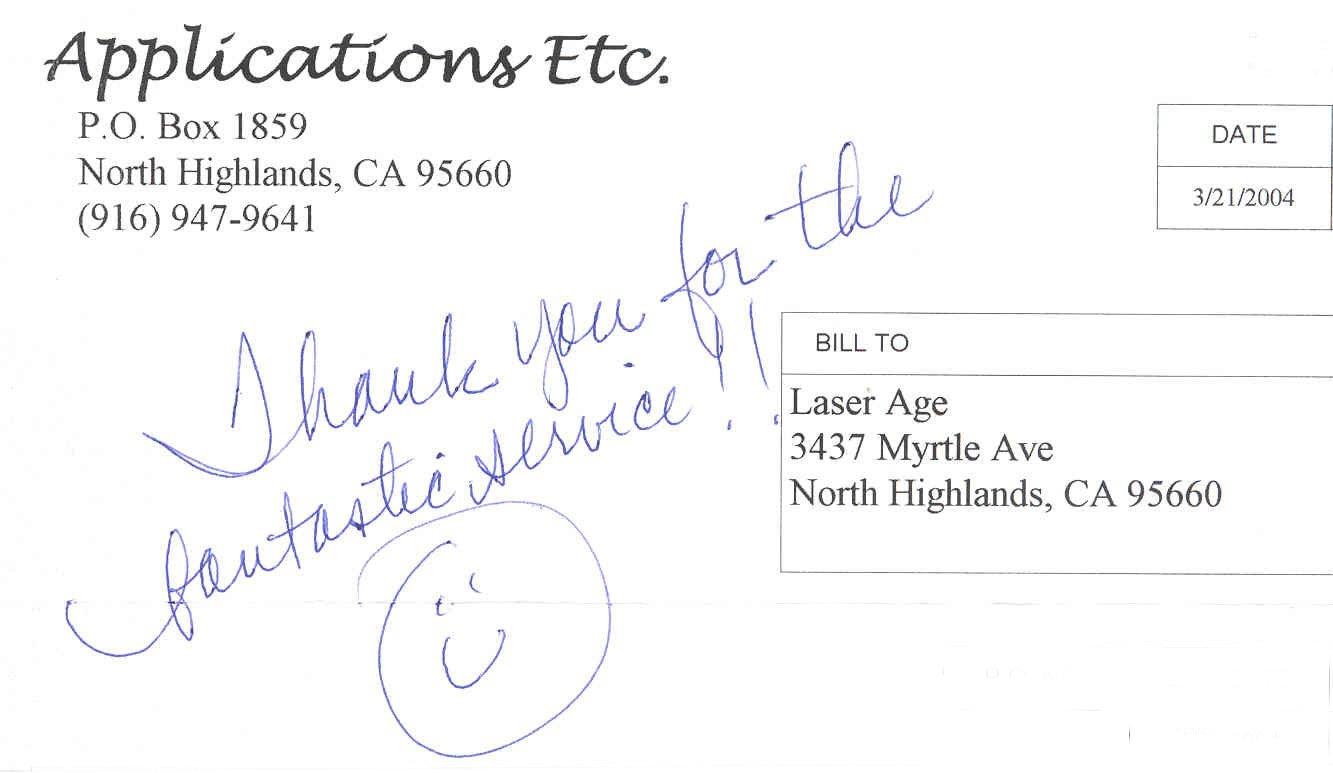 Applications Etc.
P.O. Box 1859
North Highlands, CA 95660
(916) 947-9641
DATE
3/21/2004
Thank you for the
fantastic service!!
BILL TO
Laser Age
3437 Myrtle Ave
North Highlands, CA 95660